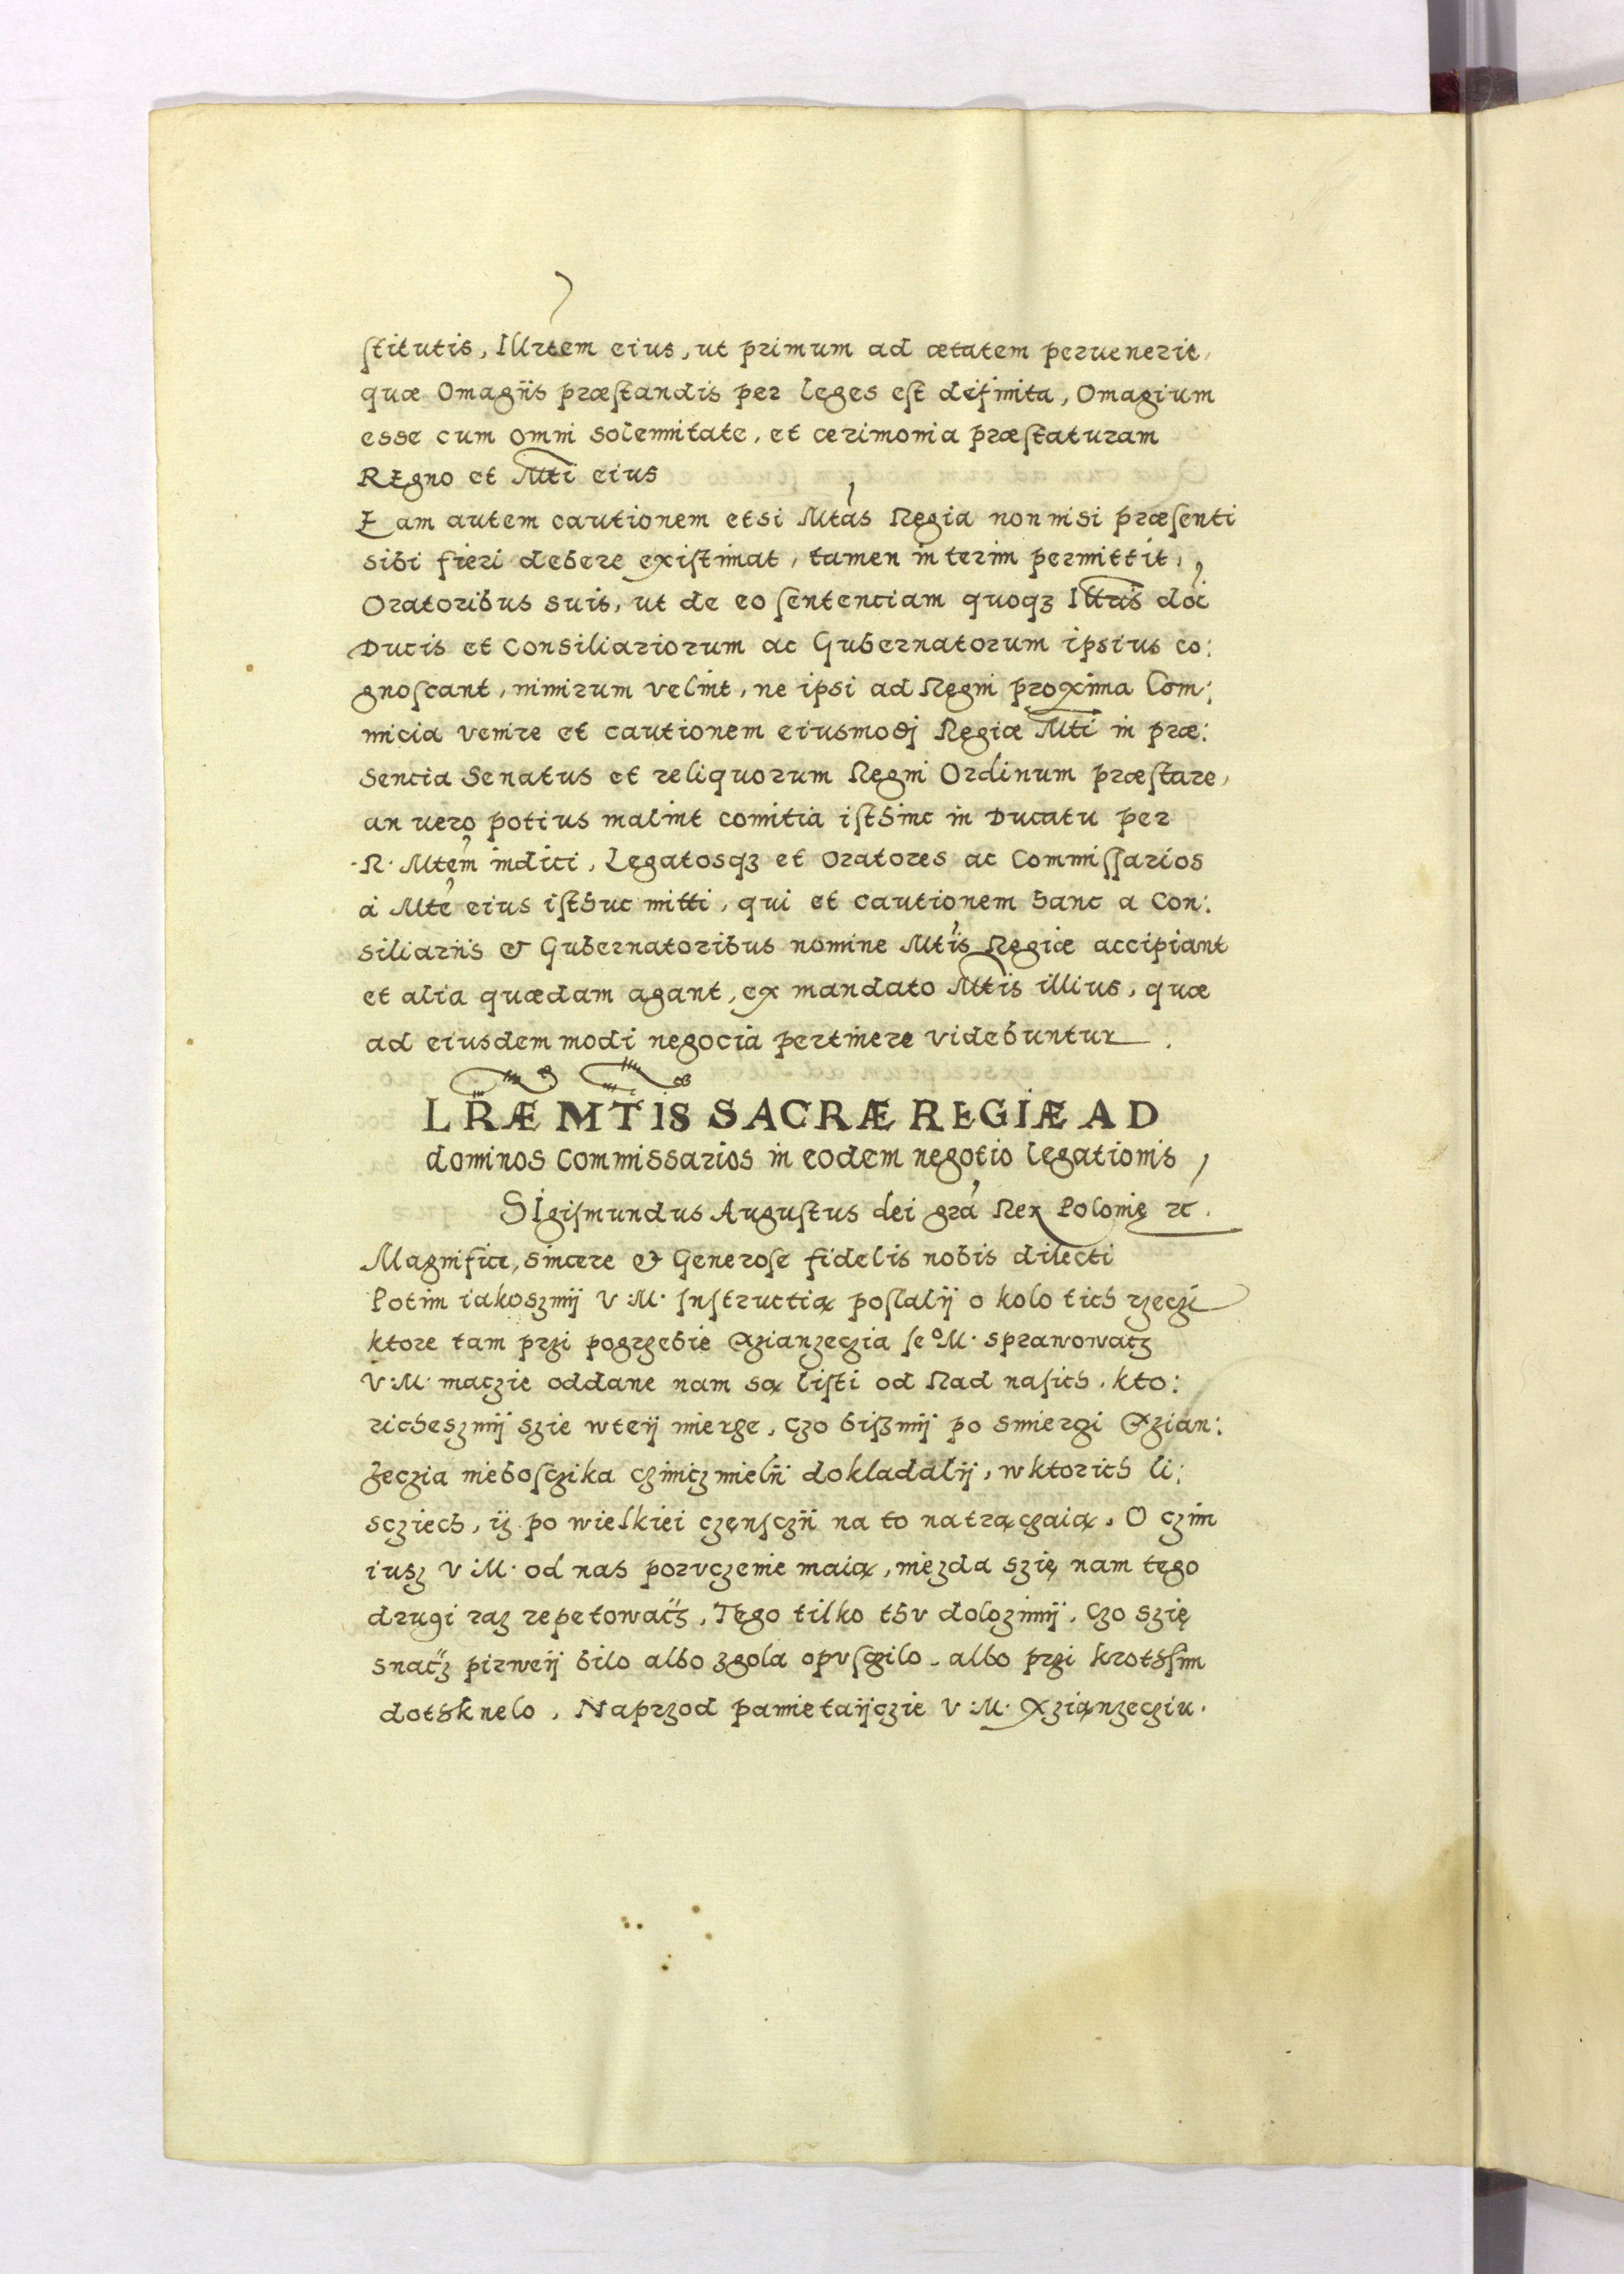 stitutis, Illrtem eius, ut primum ad ætatem peruenerit,
quæ Omagiis præstandis per leges est definita, Omagium
esse cum omni solennitate, et cerimonia præstaturam
REgno et Mti eius
Eam autem cautionem etsi Mtas Regia non nisi præsenti
sibi fieri debere existimat, tamen interim permittit,
Oratoribus suis, ut de eo sententiam quoqz Illtris doi
Ducis et Consiliariorum ac Gubernatorum ipsius co:
gnoscant, nimirum velint, ne ipsi ad Regni proxima Com:
micia venire et cautionem eiusmodj Regiæ Mti in præ:
sencia Senatus et reliquorum Regni Ordinum præstare,
an uero potius malint comitia isthinc in Ducatu per
R. Mtem indici, Legatosqz et Oratores ac Commissarios
à Mte eius isthuc mitti, qui et cautionem hanc a Con:
siliariis & Gubernatoribus nomine Mtis Regiæ accipiant
et alia quædam agant, ex mandato Mtis illius, quæ
ad eiusdem modi negocia pertinere videbuntur.
LRÆ MTIS SACRÆ REGIÆ AD
dominos Commissarios in eodem negotio legationis,
SIgismundus Augustus dei gra Rex Polonię rc.
Magnifice, sincere & Generose fidelis nobis dilecti
Potim iakoszmÿ V.M. Instructią poslalÿ o kolo tich rzeczi
ktore tam przi pogrzebie Xzianzeczia Ie° M. sprawowacz
V.M. maczie oddane nam są listi od Rad nasich. kto:
richeszmÿ szie wteÿ mierze, czo biszmÿ po smierzi Xzian:
zeczia nieboszczika czinicz mielÿ dokladalÿ, w ktorich li:
scziech, iz po wielkiei częnsczÿ na to natrączaią. O czim
iusz V.M. od nas porvczenie maią, niezda szię nam tego
drugi raz repetowacz, Tego tilko thv dolozimÿ, Czo szię
snacz pirweÿ bilo albo zgola opvscilo. albo przi krothsim
dothknelo, Naprzod pamietaÿczie V.M. Xziąnzecziu.